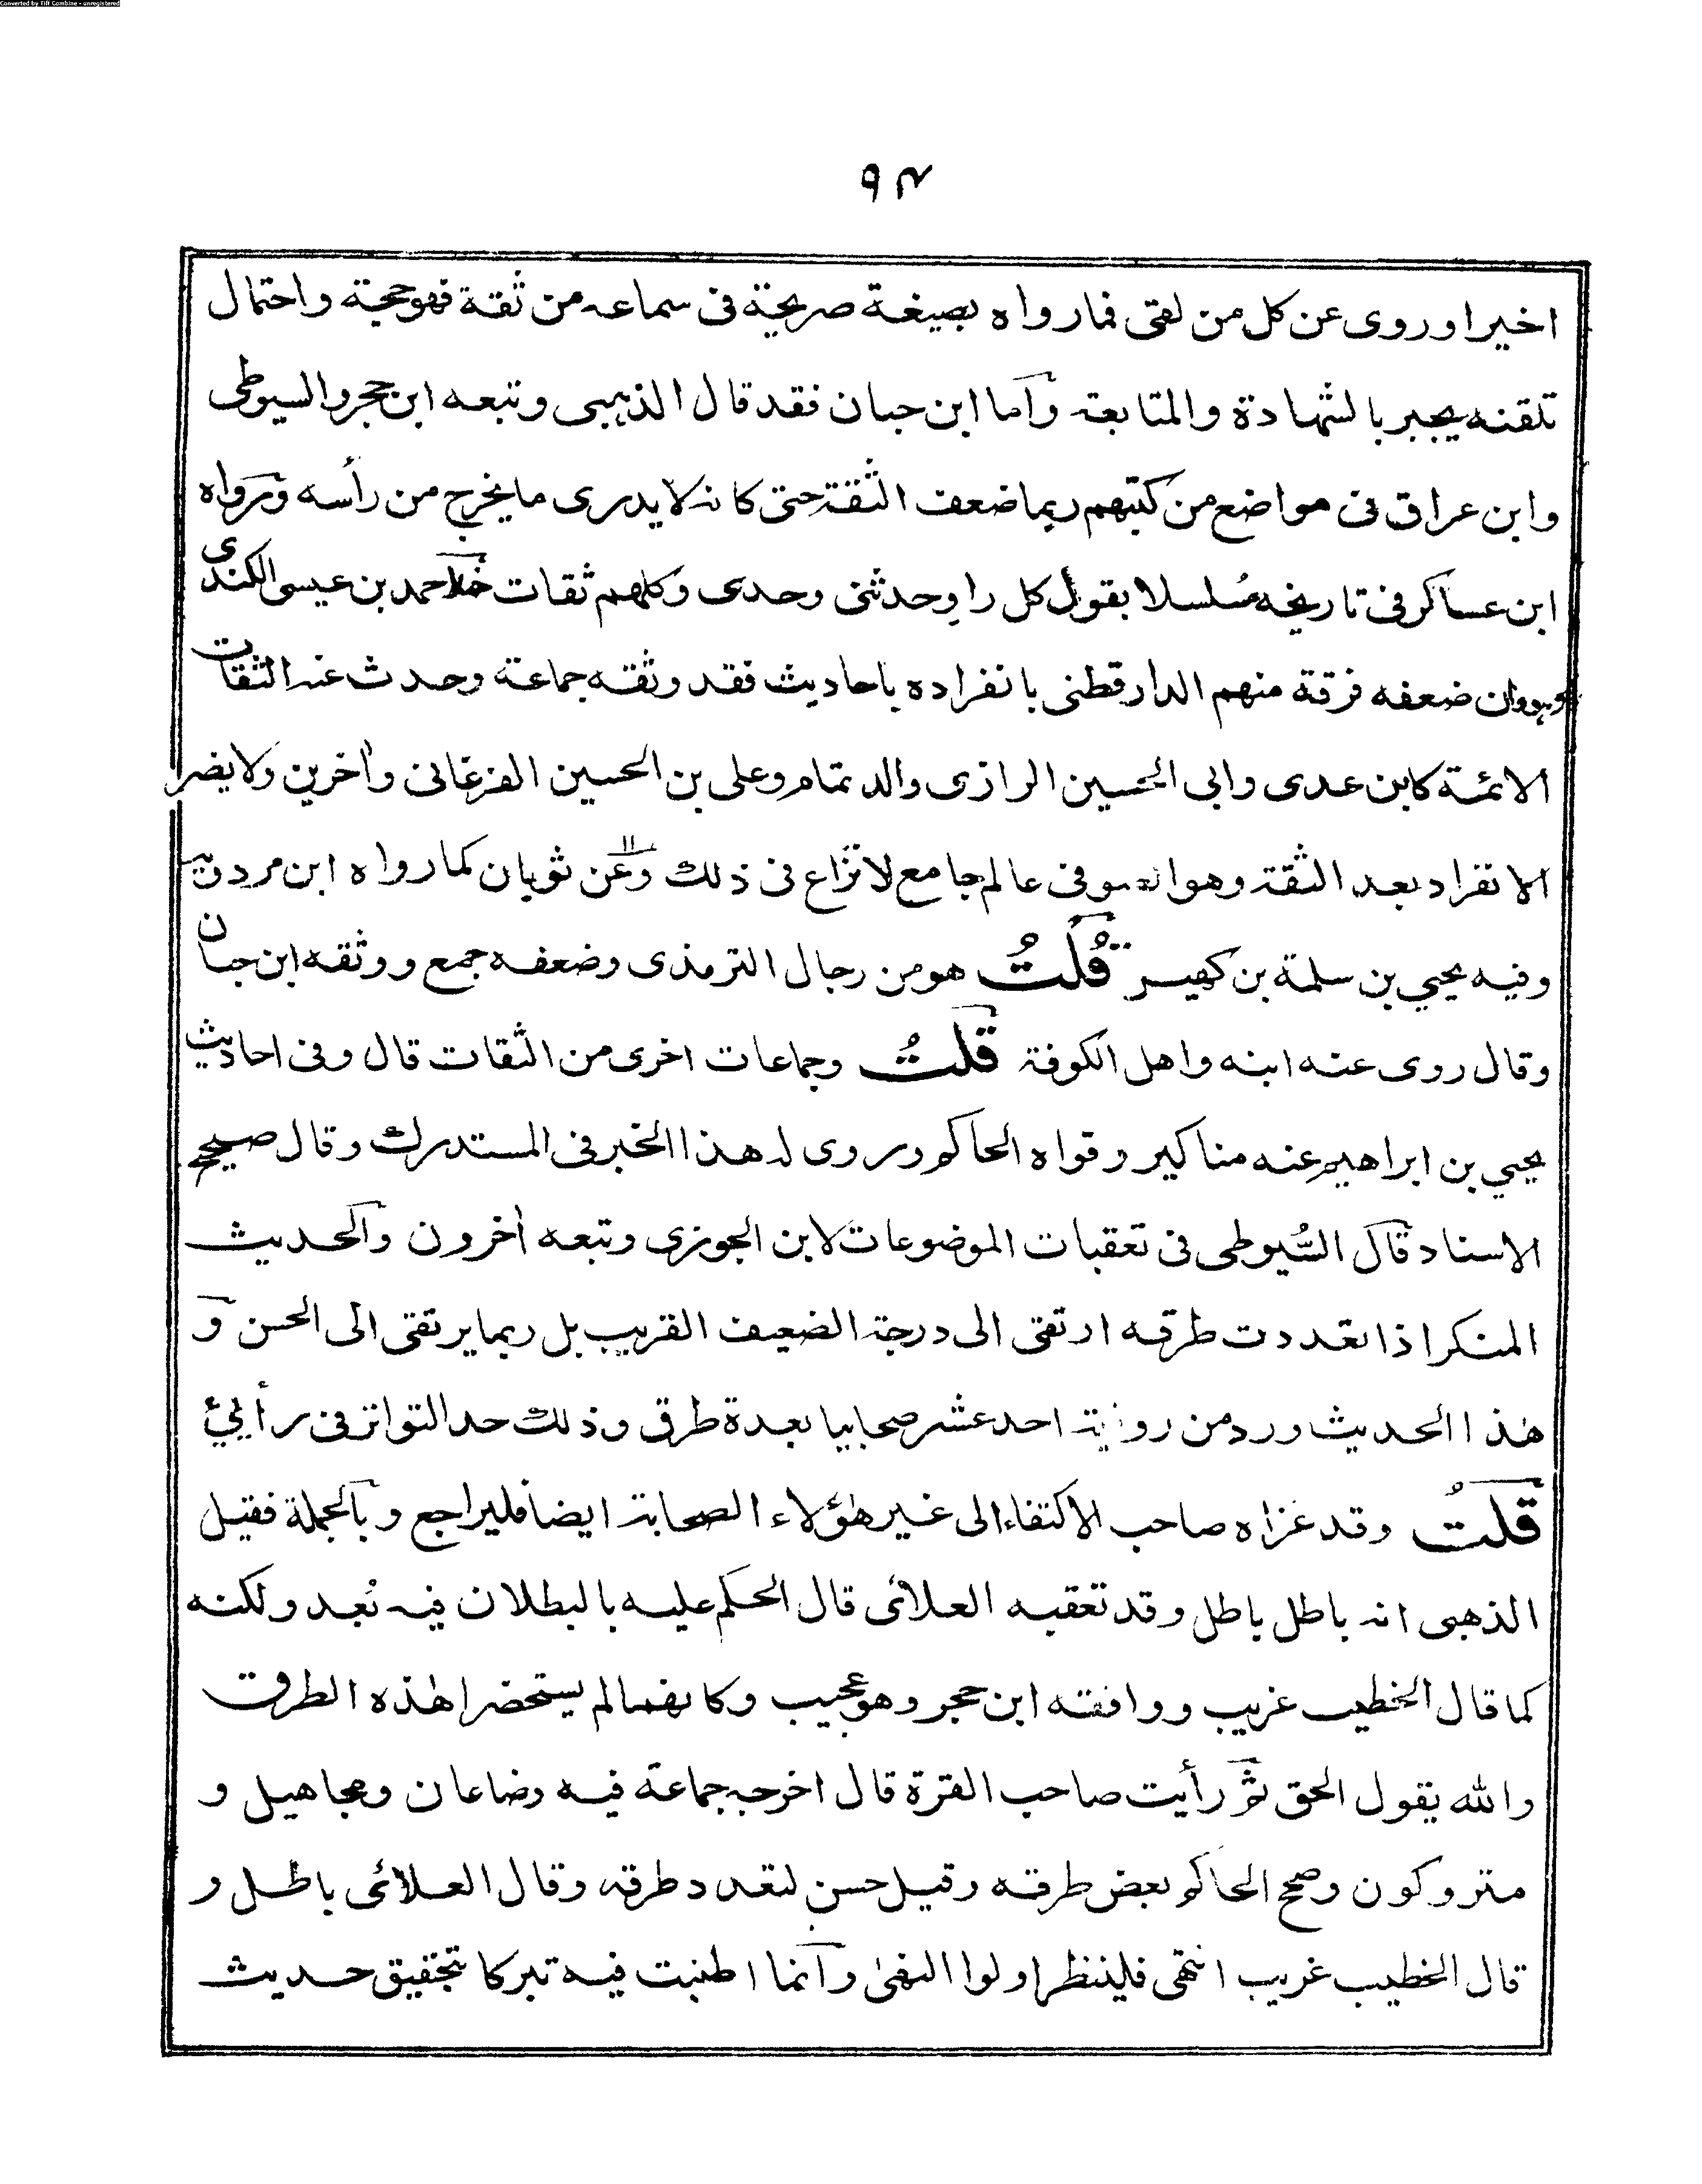 Converted by Tiff Combine - unregistered
٩٤
اخيرا وروى عن كل من لقى فما رواه بصيغة صريحة فى سماعه من ثقة فهو حجة واحتمال
تلقنه يجبر بالشهادة والمتابعة وآما ابن حبان فقد قال الذهبى وتبعه ابن حجر والسيوطى
وابن عراق فى مواضع من كتبهم ربما ضعف الثقة حتى كانه لا يدرى ما يخرج من رأسه ورواه
ابن عساكر فى تاريخه مُسلسلا بقول كل راوٍ حدثنى وحدى وكلهم ثقات خلا احمد بن عيسى الكندى
وهو وان ضعفه فرقة منهم الدارقطنى بانفراده باحاديث فقد وثقه جماعة وحدث عنه الثقات
الائمة كابن عدى وابى الحسين الرازى والد تمام وعلى بن الحسين الفرغانى واٰخرين ولا يضر
الانفراد بعد الثقة وهو فى عالم جامع لا نزاع فى ذلك وعن ثوبان كما رواه ابن مردويه
وفيه يحيي بن سلمة بن كهيسر قُلتُ هو من رجال الترمذى وضعفه جمع ووثقه ابن حبان
وقال روى عنه ابنه واهل الكوفة قلتُ وجماعات اخرى من الثقات قال وفى احاديث
يحيي بن ابراهيم عنه مناكير وقواه الحاكم وروى له هذا الخبر فى المستدرك وقال صحيح
الاسناد قال السُّيوطى فى تعقبات الموضوعات لابن الجوزى وتبعه اٰخرون والحديث
المنكر اذا تعددت طرقه ارتقى الى درجة الضعيف القريب بل ربما يرتقى الى الحسن و
هٰذا الحديث ورد من رواية احد عشر صحابيا بعدة طرق وذلك حد التواتر فى رأيئ
قلتُ وقد عزاه صاحب الاكتفاء الى غير هٰؤلاء الصحابة ايضا فليراجع وبالجملة فقيل
الذهبى انه باطل باطل وقد تعقبه العلائى قال الحكم عليه بالبطلان فيه بُعد ولكنه
كما قال الخطيب غريب ووافقه ابن حجر وهو عجيب وكانهما لم يستحضرا هٰذه الطرق
والله يقول الحق ثم رأيت صاحب القرة قال اخرجه جماعة فيه وضاعان ومجاهيل و
متروكون وصحح الحاكم بعض طرقه وقيل حسن لتعدد طرقه وقال العلائى باطل و
قال الخطيب غريب انتهى فلينظر اولوا النهىٰ وآنما اطنبت فيه تبركا بتحقيق حديث